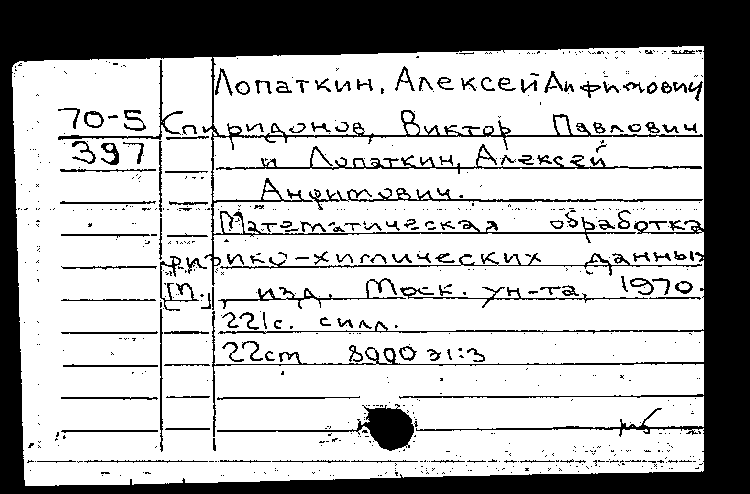 Лопаткин, Алексей Анфимович
70-5 Спиридонов, Виктор Павлович
397 и Лопаткин, Алексей
Анфимович.
Математическая обработка
физико-химических данных
[М.], изд. Моск. ун-та, 1970.
221с. с илл.
22см 8000 экз